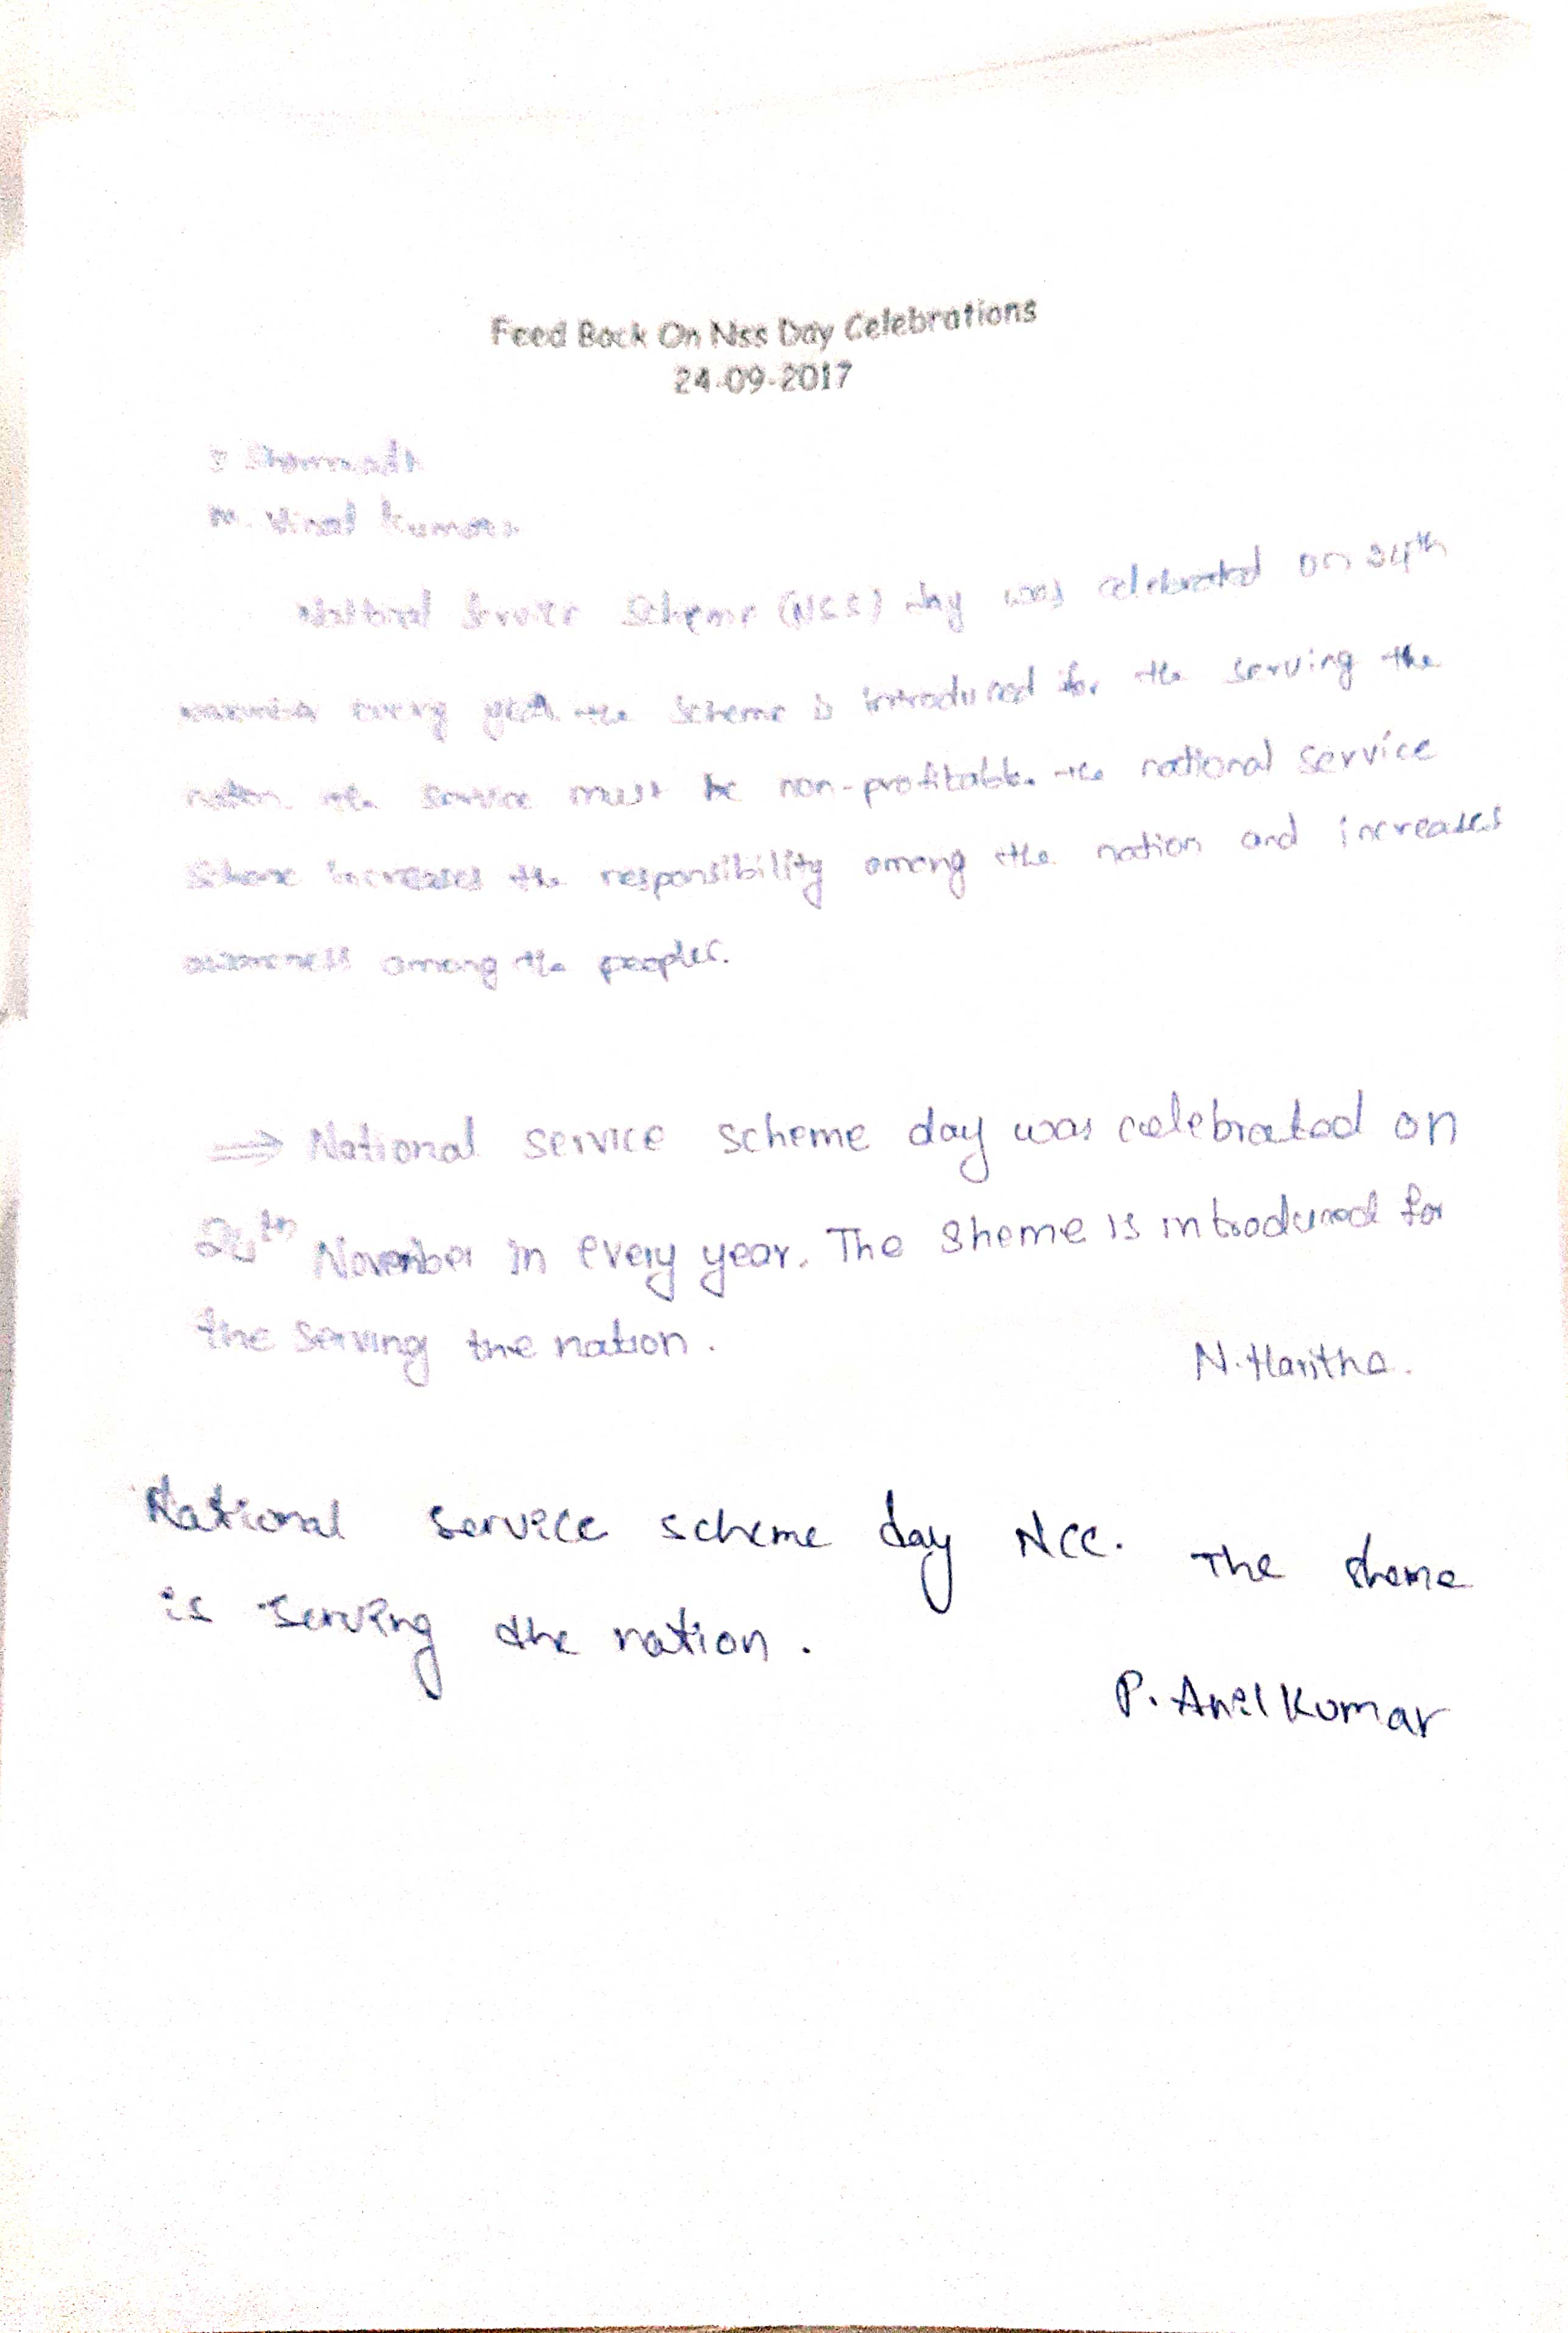 Feed Back On Nss Day Celebrations
24-09-2017
M. Vinod Kumar
National Service Scheme (NSS) day was celebrated on 24th
every year the scheme is introduced for the serving the
nation the service must be non-profitable. the national service
scheme increases the responsibility among the nation and increases
awareness among the peoples.
⇒ National service scheme day was celebrated on
24th November in every year. The sheme is introduced for
the serving the nation.
N. Haritha.
National service scheme day NCC. The sheme
is serving the nation.
P. Anil Kumar